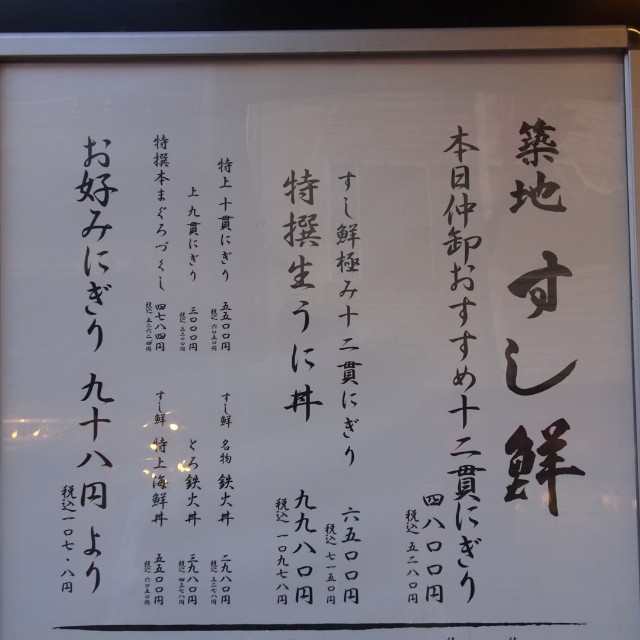 築地 すし鮮
本日仲卸おすすめ十二貫にぎり
四八〇〇円
税込 五二八〇円
すし鮮極み十二貫にぎり
六五〇〇円
税込 七一五〇円
特撰生うに丼
九九八〇円
税込 一〇九七八円
特上 十貫にぎり
五五〇〇円
税込 六〇五〇円
上 九貫にぎり
三〇〇〇円
税込 三三〇〇円
特撰本まぐろづくし
四七八四円
税込 五二六二四円
すし鮮 名物 鉄火丼
二九八〇円
税込 三二七八円
とろ鉄火丼
三九八〇円
税込 四三七八円
すし鮮 特上海鮮丼
五五〇〇円
税込 六〇五〇円
お好みにぎり 九十八円より
税込一〇七・八円